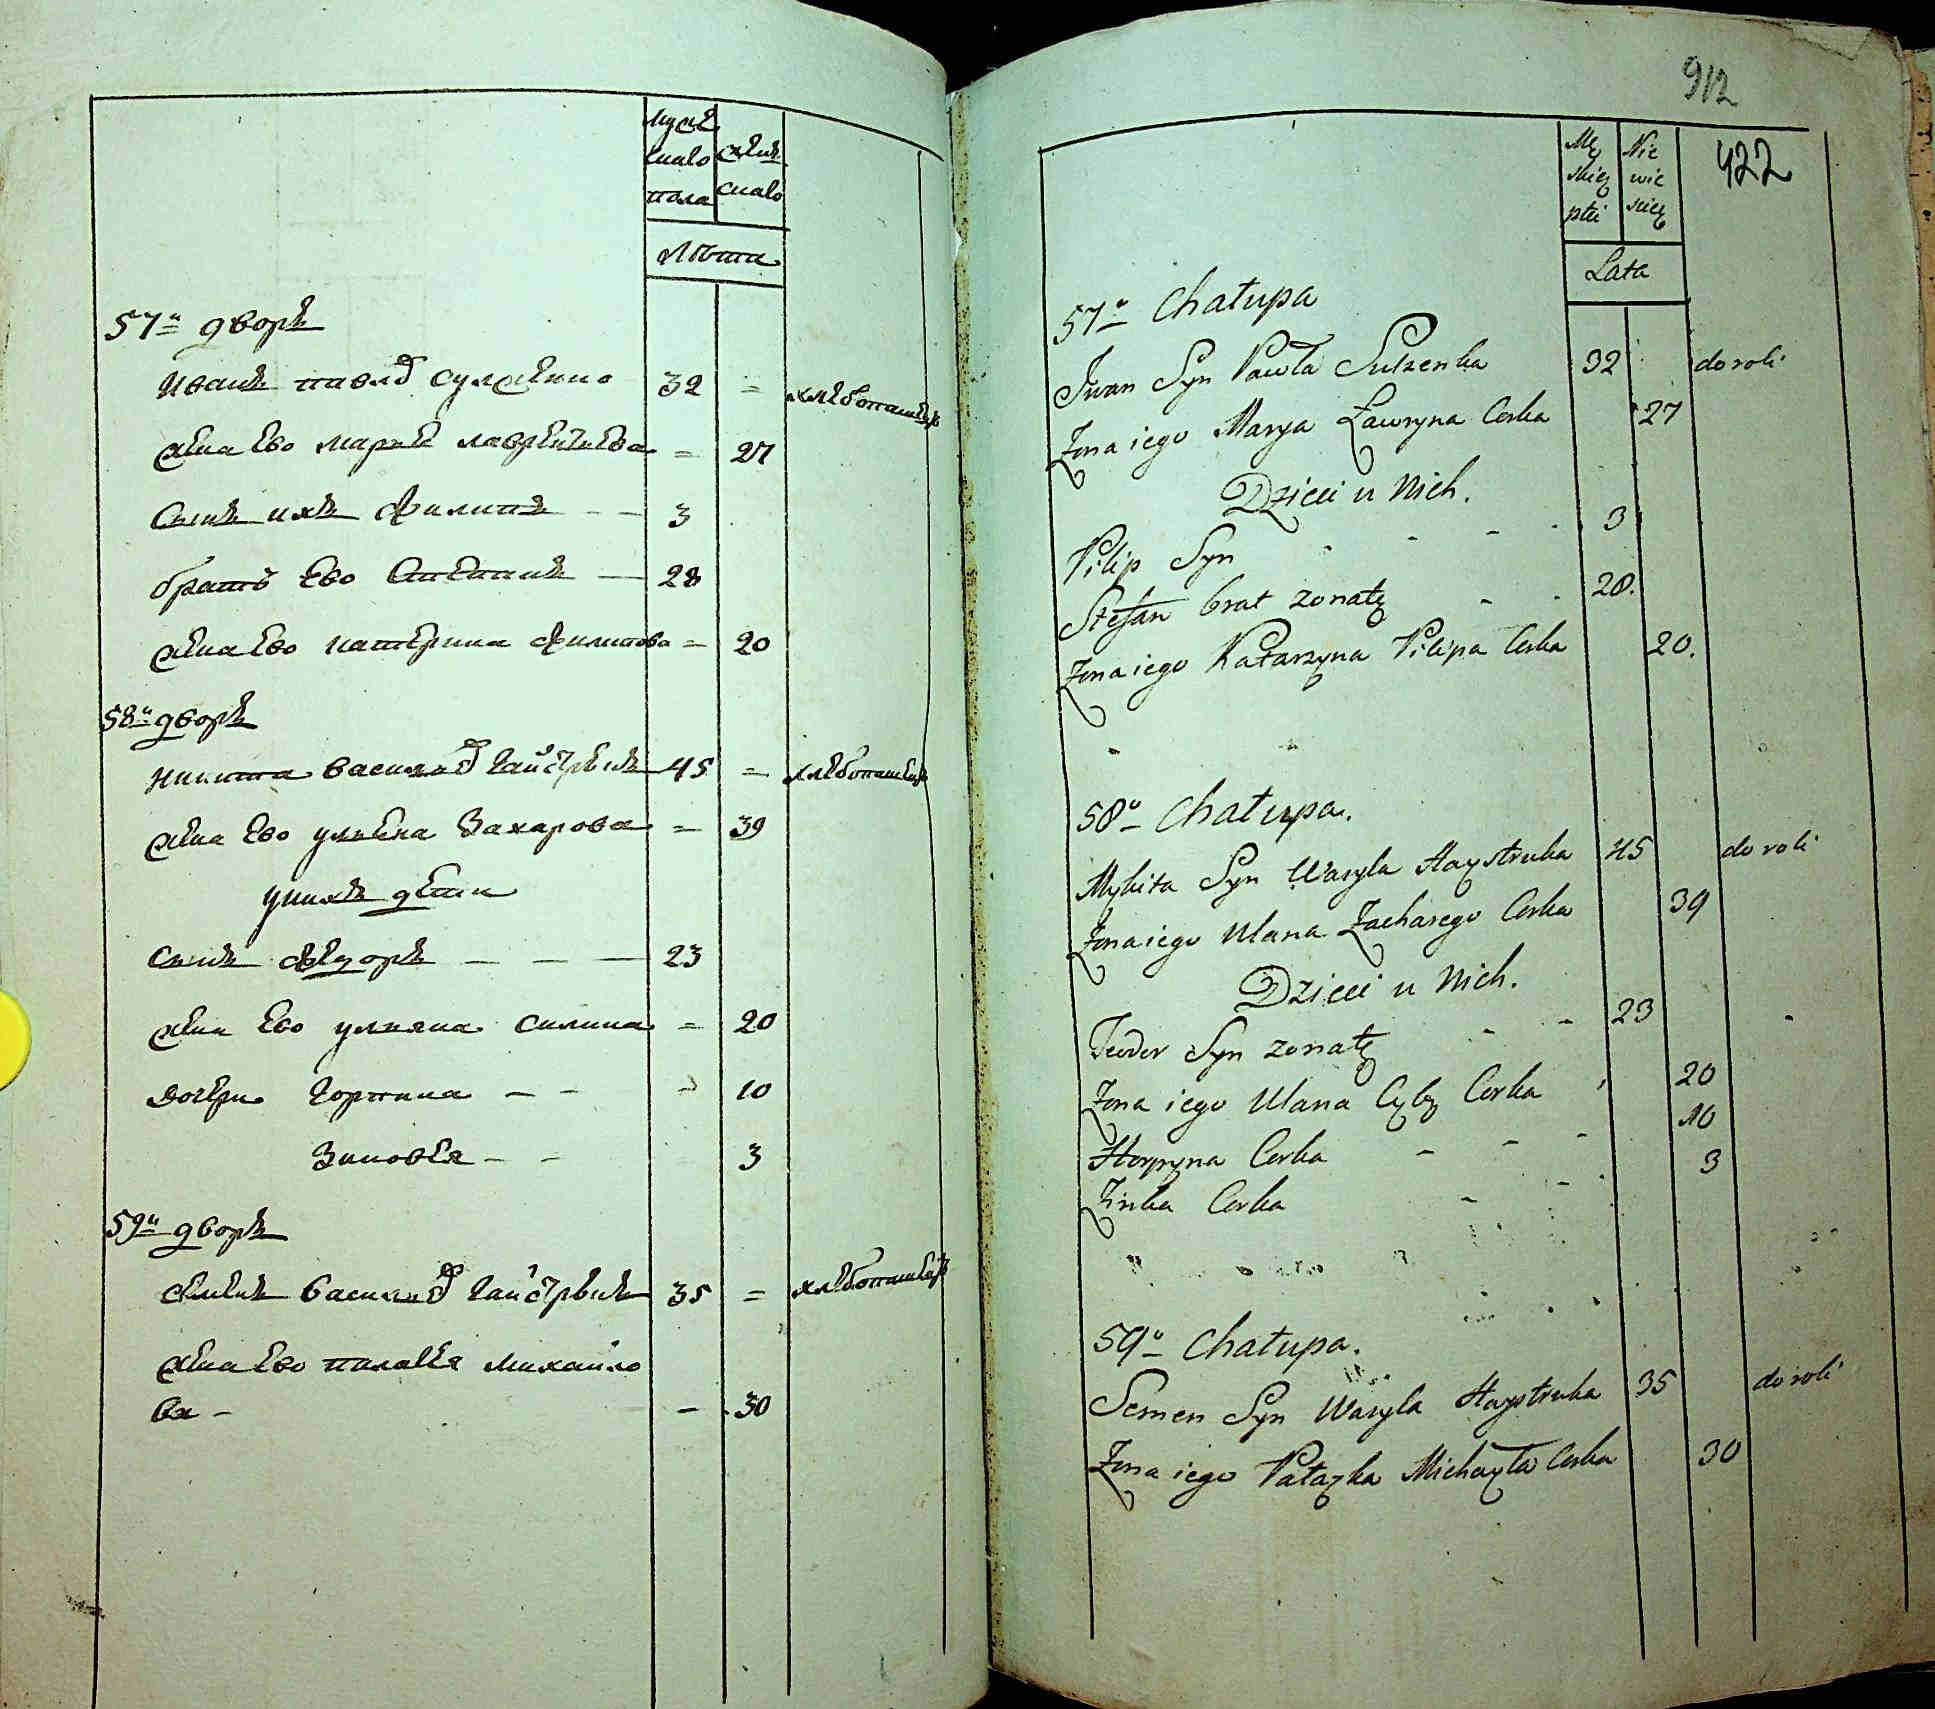 Мужескаго пола
женскаго
Лѣта
57й дворъ
Иванъ павлов Сулженко 32 = хлѣбопашецъ
жена Ево марья лаврентиева = 27
Сынъ ихъ филипъ — — 3
братъ Ево Степанъ — 28
жена Ево катерина филипова = 20
58й дворъ
Никита василиев Гайструкъ 45 = хлѣбопашецъ
жена Ево улиена Захарова = 39
унихъ дети
Сынъ феѡдоръ — — — 23
жена Ево улияна Силина = 20
Дочери Горпина — — 10
Зиновея — — 3
59й дворъ
семенъ василиев Гайструкъ 35 = хлѣбопашецъ
жена Ево палагея михайло
ва — — 30
912
422
Męskiey płci
Niewieskiey
Lata
57a Chałupa
Jwan Syn Pawła Sulzenka 32 do roli
Zona iego Marya Ławryna Corka 27
Dzieci u Nich.
Pilip Syn - - - 3
Stefan brat zonaty - - 28.
Zona iego Katarzyna Pilipa Corka 20.
58a Chałupa.
Mykita Syn Wasyla Haystruka 45 do roli
Zona iego Ulana Zacharego Corka 39
Dzieci u Nich.
Teodor Syn zonaty - - 23
Zona iego Ulana Cyby Corka 20
Horpyna Corka - - - 10
Zinka Corka - - 3
59a Chałupa.
Semen Syn Wasyla Haystruka 35 do roli
Zona iego Pałazka Michayła Corka 30